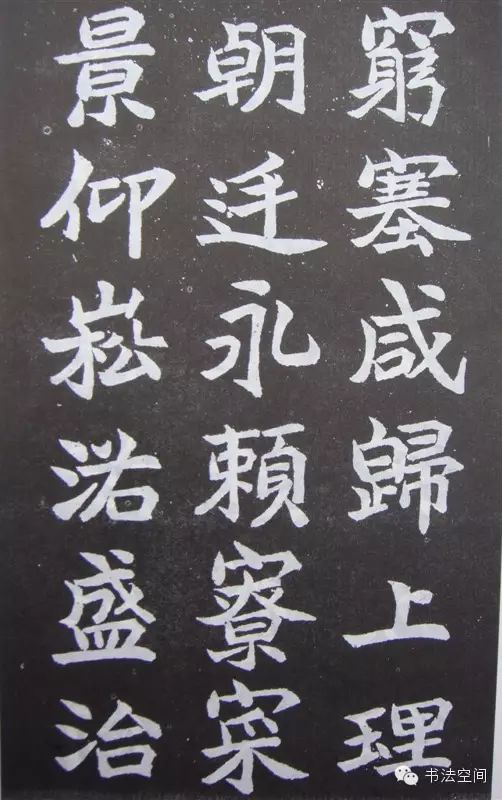 窮塞咸歸上理
朝廷永頼寮寀
景仰崧洛盛治
书法空间